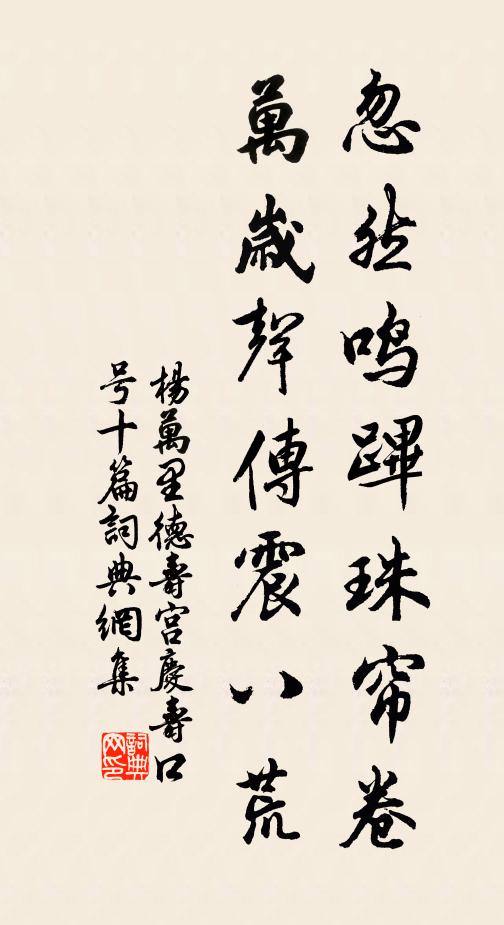 忽然鸣蹕珠帘卷
萬歲聲傳震八荒
楊萬里德壽宮慶壽口
号十篇詞典網集
詞典网印